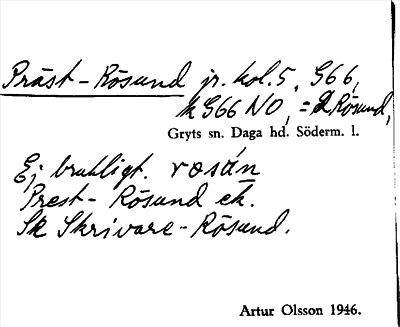 Präst-Rösund jr. kol.5, G66,
k G66 NO, = 2 Rösund,
Gryts sn. Daga hd. Söderm. l.
Ej brukligt. rosán
Prest- Rösund ek.
Sk Skrivare-Rösund.
Artur Olsson 1946.